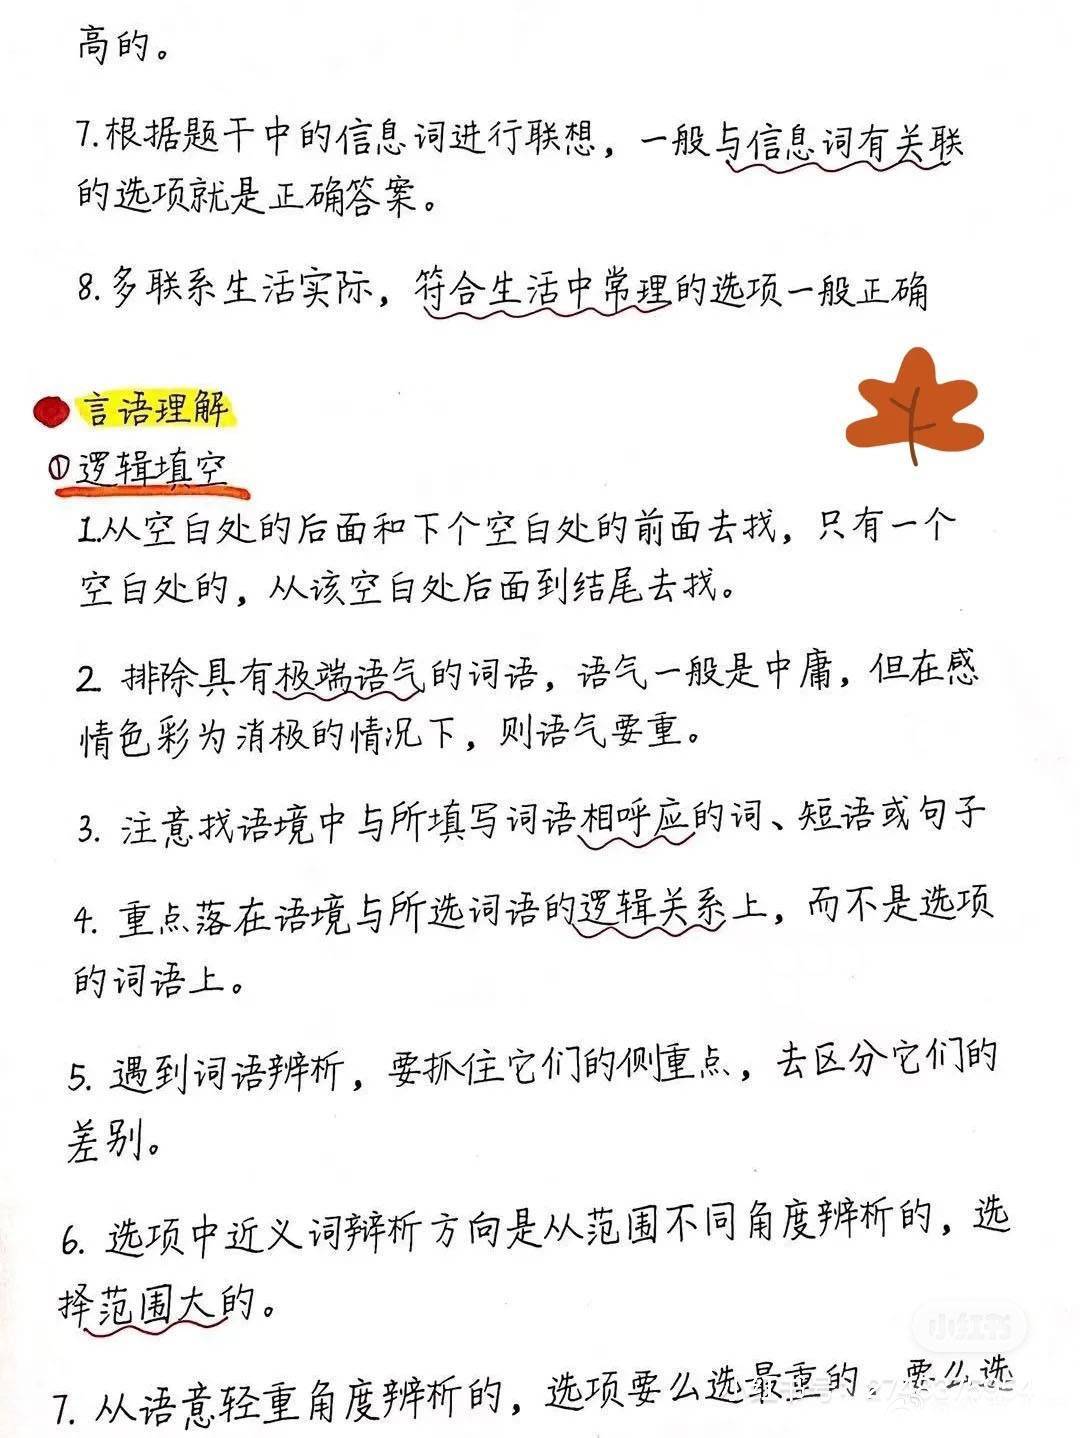 高的。
7.根据题干中的信息词进行联想，一般与信息词有关联
的选项就是正确答案。
8.多联系生活实际，符合生活中常理的选项一般正确
言语理解
①逻辑填空
1.从空白处的后面和下个空白处的前面去找，只有一个
空白处的，从该空白处后面到结尾去找。
2. 排除具有极端语气的词语，语气一般是中庸，但在感
情色彩为消极的情况下，则语气要重。
3. 注意找语境中与所填写词语相呼应的词、短语或句子
4. 重点落在语境与所选词语的逻辑关系上，而不是选项
的词语上。
5. 遇到词语辨析，要抓住它们的侧重点，去区分它们的
差别。
6. 选项中近义词辩析方向是从范围不同角度辨析的，选
择范围大的。
小红书
7. 从语意轻重角度辨析的，选项要么选最重的，要么选